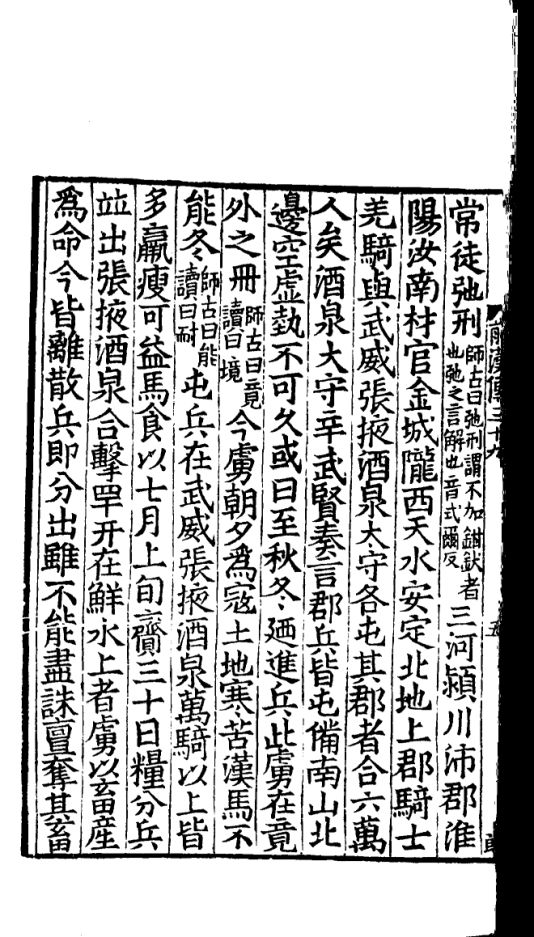 常徒弛刑師古曰弛刑謂不加鉗釱者也弛之言解也音式爾反三河潁川沛郡淮
陽汝南材官金城隴西天水安定北地上郡騎士
羌騎與武威張掖酒泉太守各屯其郡者合六萬
人矣酒泉大守辛武賢奏言郡兵皆屯備南山北
邊空虛埶不可久或曰至秋冬迺進兵此虜在竟
外之冊師古曰竟讀曰境今虜朝夕爲寇土地寒苦漢馬不
能冬師古曰能讀曰耐屯兵在武威張掖酒泉萬騎以上皆
多羸瘦可益馬食以七月上旬齎三十日糧分兵
竝出張掖酒泉合擊罕幵在鮮水上者虜以畜産
爲命今皆離散兵即分出雖不能盡誅亶奪其畜